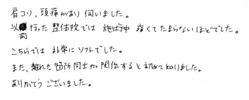 肩コリ、頭痛があり 伺いました。
以前行った整体院では 施術中 痛くてたまらないほどでした。
こちらでは 非常に ソフトでした。
また、離れた箇所同士が関係すると初めて知りました。
ありがとうございました。